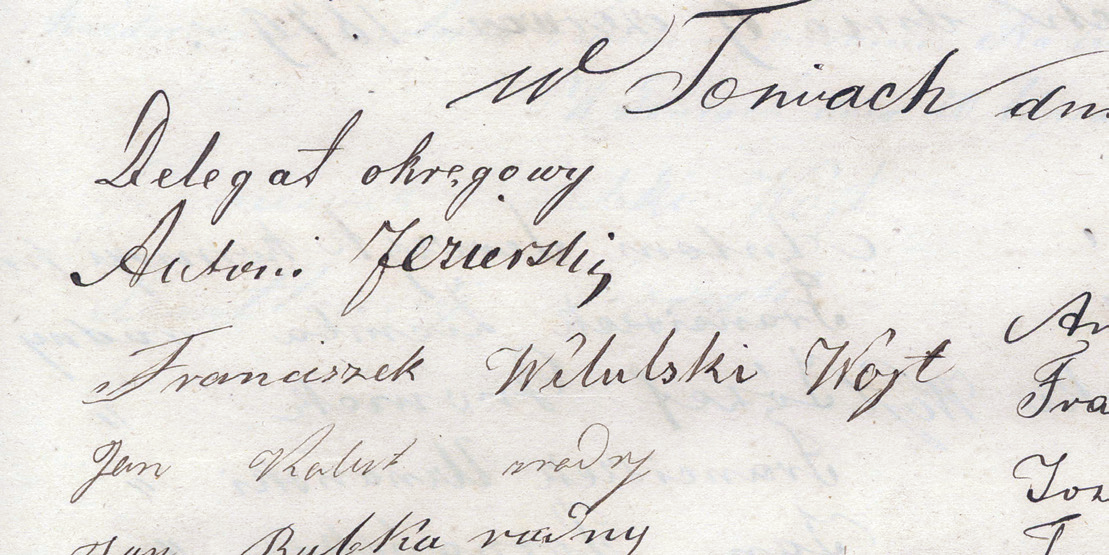 w Toniach dn
Delegat okręgowy
Antoni Jezierski
Franciszek Wilulski Wojt
Jan radny
Jan Bubka radny
An
Fra
Joz